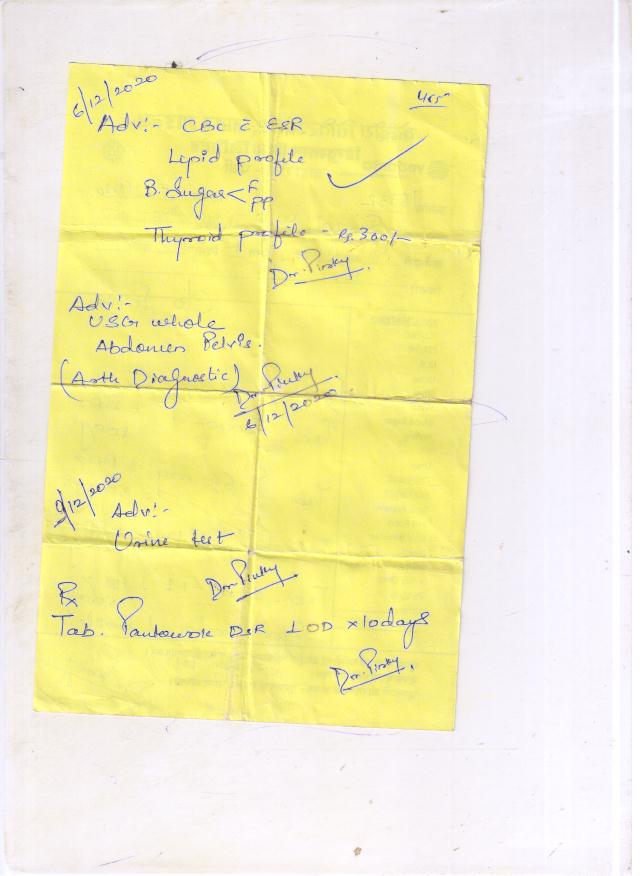 6/12/2020
Adv:- CBC c̄ ESR
Lipid profile
B. Sugar < F
PP
Thyroid profile - Rs. 300/-
Dr. Pinky.
Adv:-
USG whole
Abdomen Pelvis.
(Arth Diagnostic) Dr. Pinky.
6/12/2020
9/12/2020
Adv:-
Urine test
Dr. Pinky
Rx
Tab. DSR 1 OD x 10 days
Dr. Pinky.